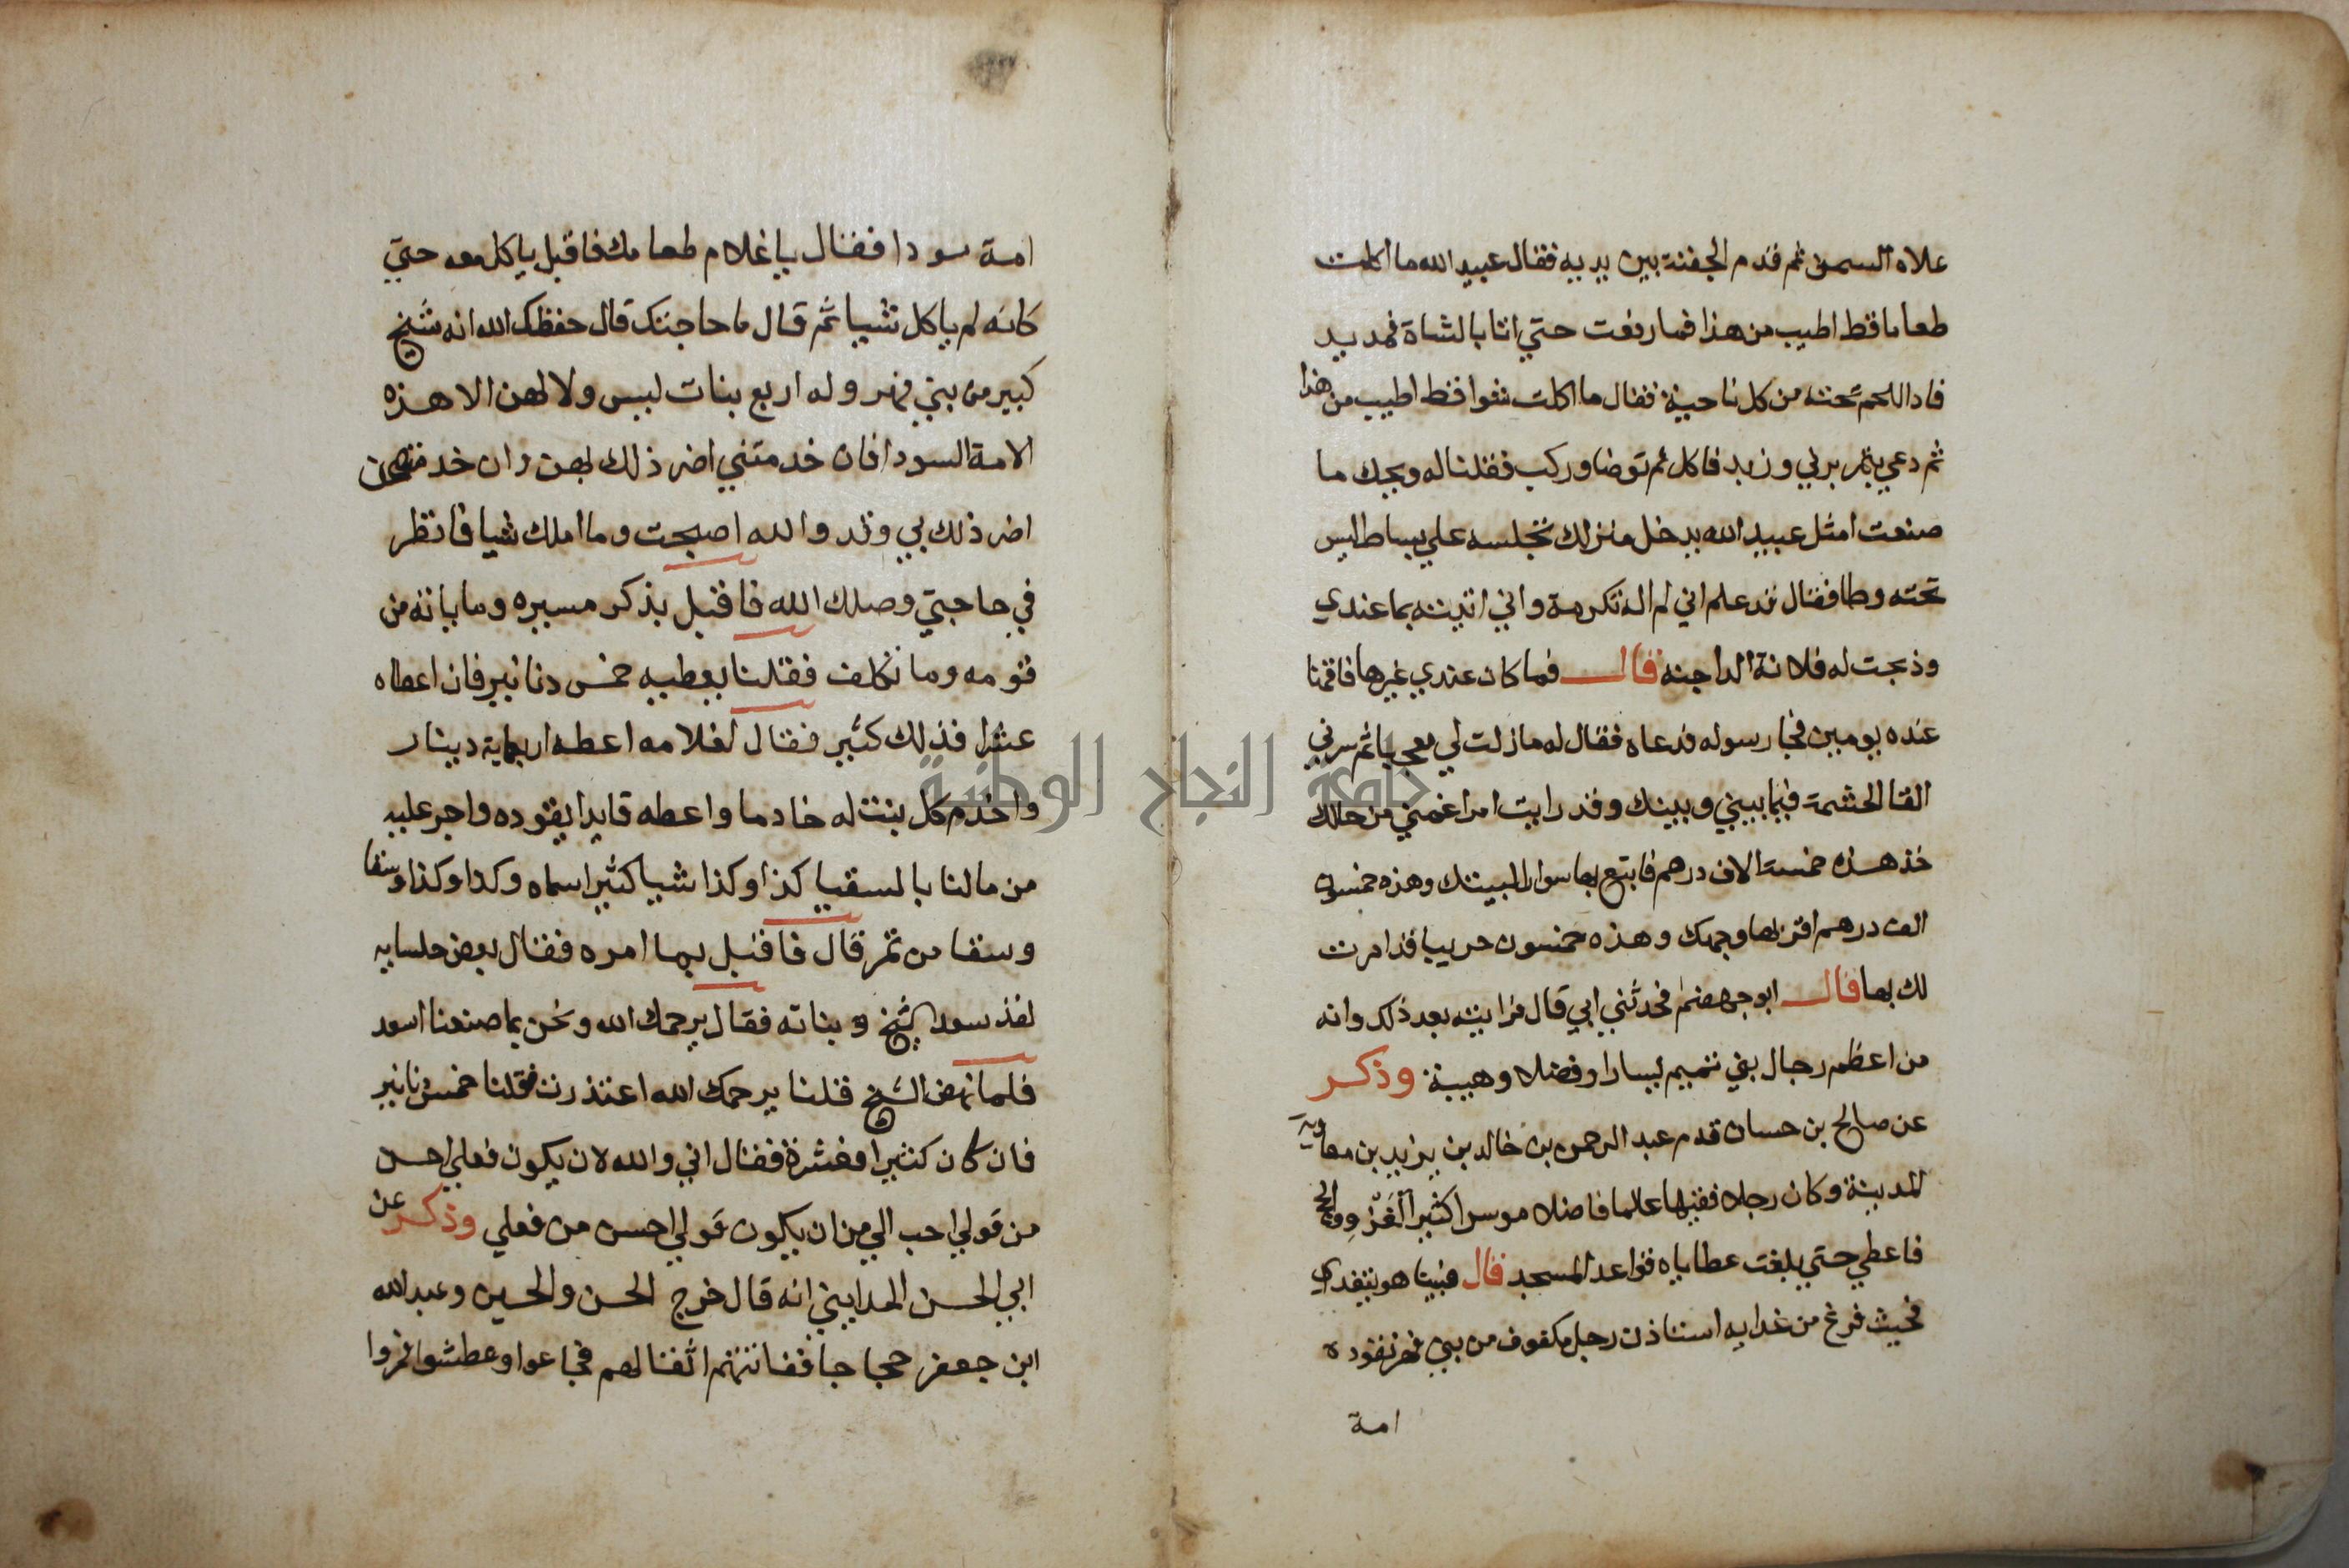 علاه السمن ثم قدم الجفنة بين يديه فقال عبيد الله ما اكلت
طعاما قط اطيب من هذا فما رفعت حتي اتا بالشاة فمد يد
فاد اللحم تحته من كل ناحية فقال ما اكلت شوا قط اطيب من هذا
ثم دعي بتمر برني وزبد فاكل ثم توضا وركب فقلنا له ويحك ما
صنعت امثل عبيد الله يدخل منزلك تجلسه علي بساط ليس
تحته وطا فقال قد علم اني لم اله تكرمة واني اتيته بما عندي
وذبحت له فلانة الداجنه فقال فما كان عندي غيرها فاقمنا
عنده يومين فجا رسوله فدعاه فقال له ما زلت لي معجبا ثم سرني
القا الحشمة فيما بيني وبينك وقد رايت امرا غمني من حالك
خذ هذه خمسة الاف درهم فابتع بها سوار لبيتك وهذه خمسون
الف درهم اقر بها وجهك وهذه خمسون حريبا قد امرت
لك بها قال ابو جهضم فحدثني ابي قال فرايته بعد ذلك وانه
من اعظم رجال بني تميم يسارا وفضلا وهيبة وذكر
عن صالح بن حسان قدم عبد الرحمن بن خالد بن يزيد بن معاوية
المدينة وكان رجلا فقيها عالما فاضلا موسرا كثير الغزو والحج
فاعطي حتي بلغت عطاياه قواعد المسجد قال فبينا هو يتغدي
فحيث فرغ من غدايه استاذن رجل مكفوف من بني فهر تقوده
امة
امة سودا فقال يا غلام طعامك فاقبل ياكل معه حتي
كانه لم ياكل شيا ثم قال ما حاجتك قال حفظك الله انه شيخ
كبير من بني فهر وله اربع بنات ليس ولا لهن الا هذه
الامة السودا فان خدمتني اضر ذلك بهن وان خدمتهن
اضر ذلك بي وقد والله اصبحت وما املك شيا فانظر
في حاجتي وصلك الله فاقبل يذكر مسيره وما باته من
قومه وما تكلف فقلنا يعطيه خمس دنانير فان اعطاه
عشرا فذلك كثير فقال لغلامه اعطه اربعماية دينار
واخدم كل بنت له خادما واعطه قايدا يقوده واجر عليه
من مالنا بالسقيا كذا وكذا شيا كثيرا سماه وكذا وكذا وسقا
وسقا من تمر قال فاقبل بها امره فقال بعض جلسايه
لقد سود الشيخ وبناته فقال يرحمك الله ونحن بما صنعنا اسود
فلما نهض الشيخ قلنا يرحمك الله اعتذرت فقلنا خمس دنانير
فان كان كثيرا فعشرة فقال اني والله لان يكون فعلي احسن
من قولي احب الي من ان يكون قولي احسن من فعلي وذكر عن
ابي الحسن المدايني انه قال خرج الحسن والحسين وعبد الله
ابن جعفر حجاجا ففاتتهم اثقالهم فجاعوا وعطشوا فمروا
جامعة النجاح الوطنية